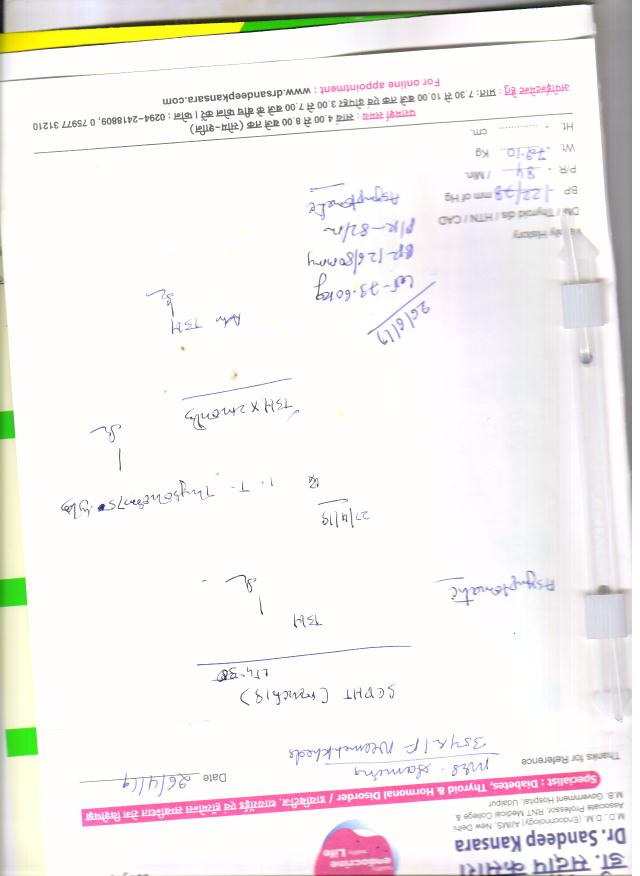 डॉ. संदीप कंसारा
Dr. Sandeep Kansara
M.D., D.M. (Endocrinology) AIIMS, New Delhi
Associate Professor, RNT Medical College &
M.B. Government Hospital, Udaipur
endocrine
Life
Specialist : Diabetes, Thyroid & Hormonal Disorder / डायबिटीज, थायरॉईड एवं हार्मोन्स सम्बन्धित रोग विशेषज्ञ
Thanks for Reference
Date 26/4/19
Mrs.
35yr / F
SCDHT
LT4-
TSH
Asymptomatic
27/4/19
1. T.
TSH x 2 months
TSH
26/6/19
Wt- 79.60kg
BP-126/80mmHg
P/R-82/m
Asymptomatic
Family History
DM / Thyroid dis / HTN / CAD
BP 122/78 mm of Hg
P/R - 84 / Min.
Wt. 79.10 Kg
Ht. - ............ cm.
परामर्श समय : सायं 4.00 से 8.00 बजे तक (सोम-शनि)
अपॉइन्टमेन्ट हेतु : प्रातः 7.30 से 10.00 बजे तक एवं दोपहर 3.00 से 7.00 बजे के बीच फोन करें। फोन : 0294-2418809, 0 75977 31210
For online appointment : www.drsandeepkansara.com